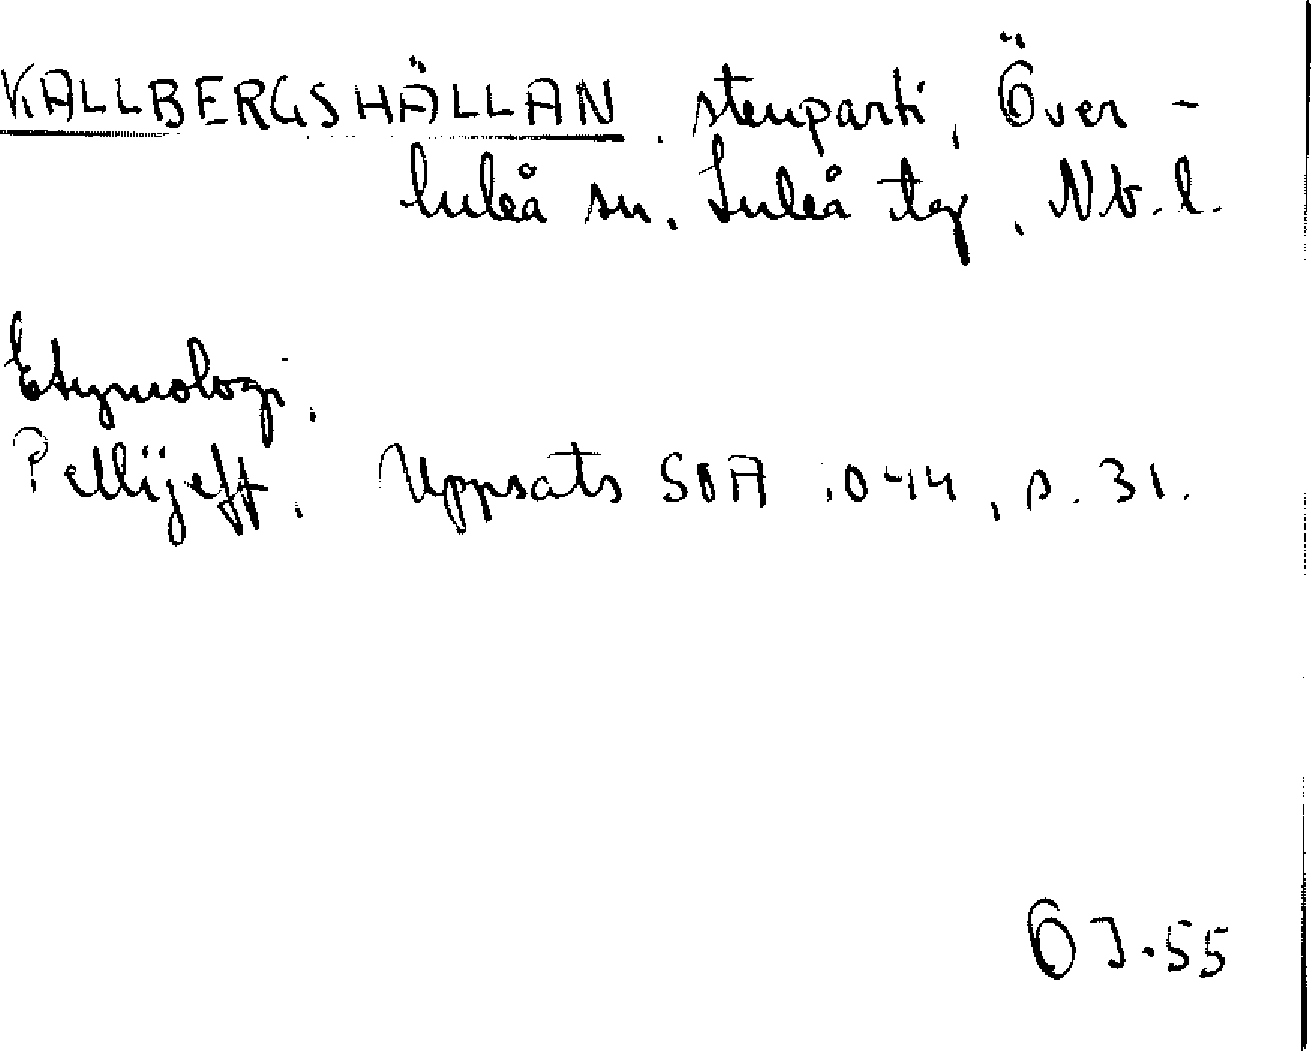 KALLBERGSHÄLLAN, stenparti, Över-
luleå sn, Luleå tg, Nb. l.
Etymologi.
Pellijeff. Uppsats SOA :044, s. 31.
ÖJ.55